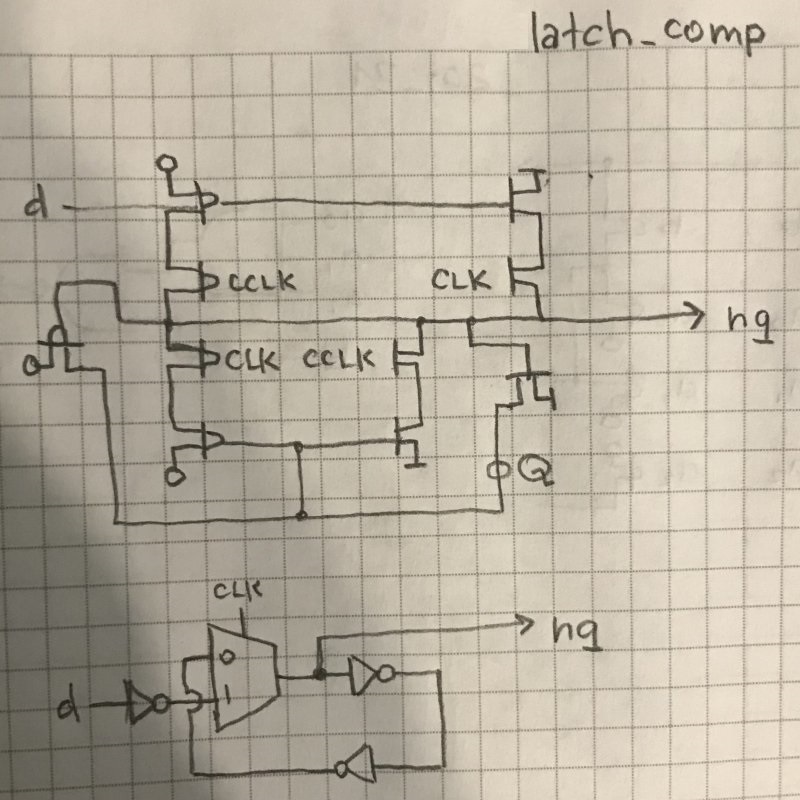 latch_comp
d
CCLK CLK
nq
CLK CCLK
Q
CLK
nq
0
d 1